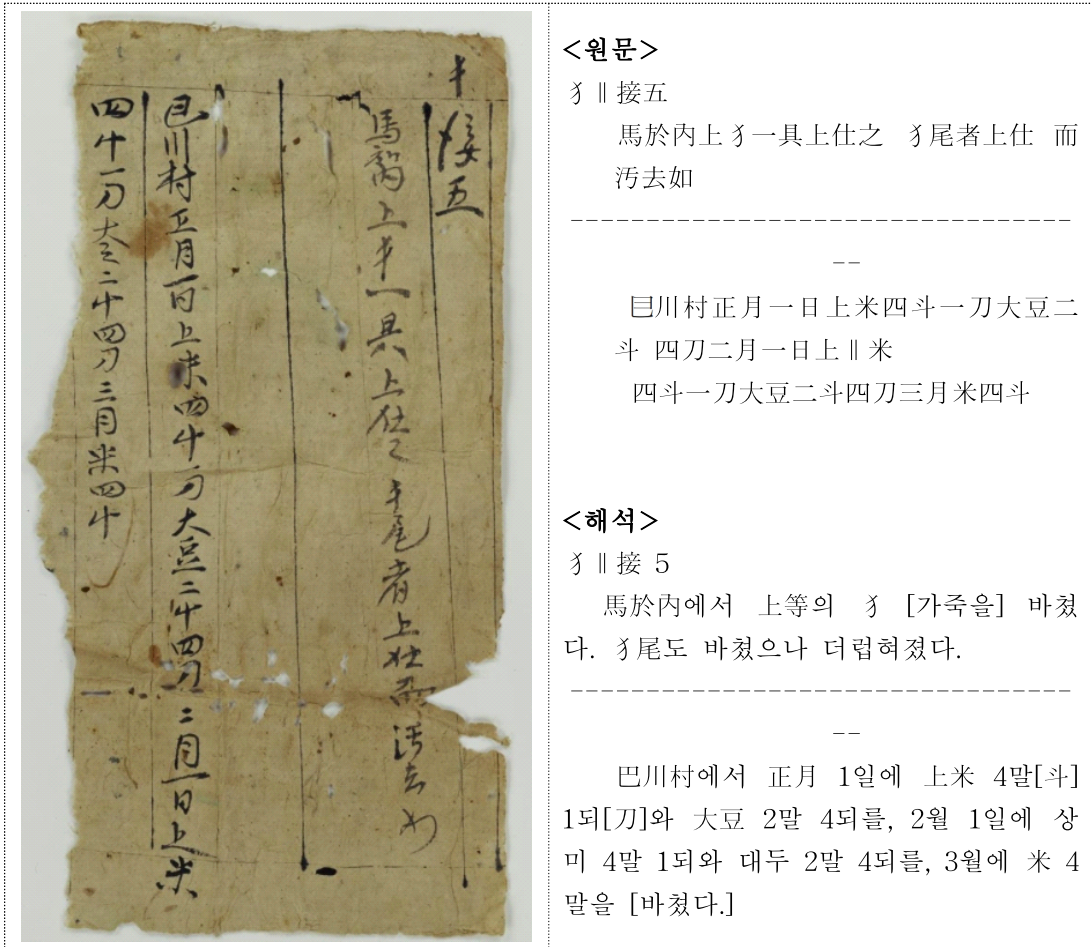 犭
接五
馬於內上犭一具上仕之 犭尾者上仕而汚去如
巴川村正月一日上米四斗一刀大豆二斗四刀二月一日上米
四斗一刀大豆二斗四刀三月米四斗
<원문>
犭∥接五
馬於內上犭一具上仕之 犭尾者上仕 而
汚去如
---------------------------------
--
川村正月一日上米四斗一刀大豆二
斗 四刀二月一日上∥米
四斗一刀大豆二斗四刀三月米四斗
<해석>
犭∥接 5
馬於內에서 上等의 犭 [가죽을] 바쳤
다. 犭尾도 바쳤으나 더럽혀졌다.
---------------------------------
--
巴川村에서 正月 1일에 上米 4말[斗]
1되[刀]와 大豆 2말 4되를, 2월 1일에 상
미 4말 1되와 대두 2말 4되를, 3월에 米 4
말을 [바쳤다.]